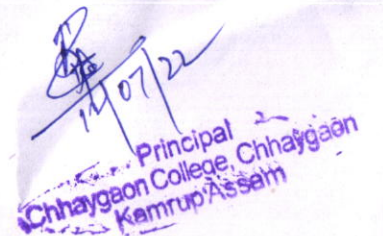 14/07/22
Principal
Chhaygaon College, Chhaygaon
Kamrup Assam